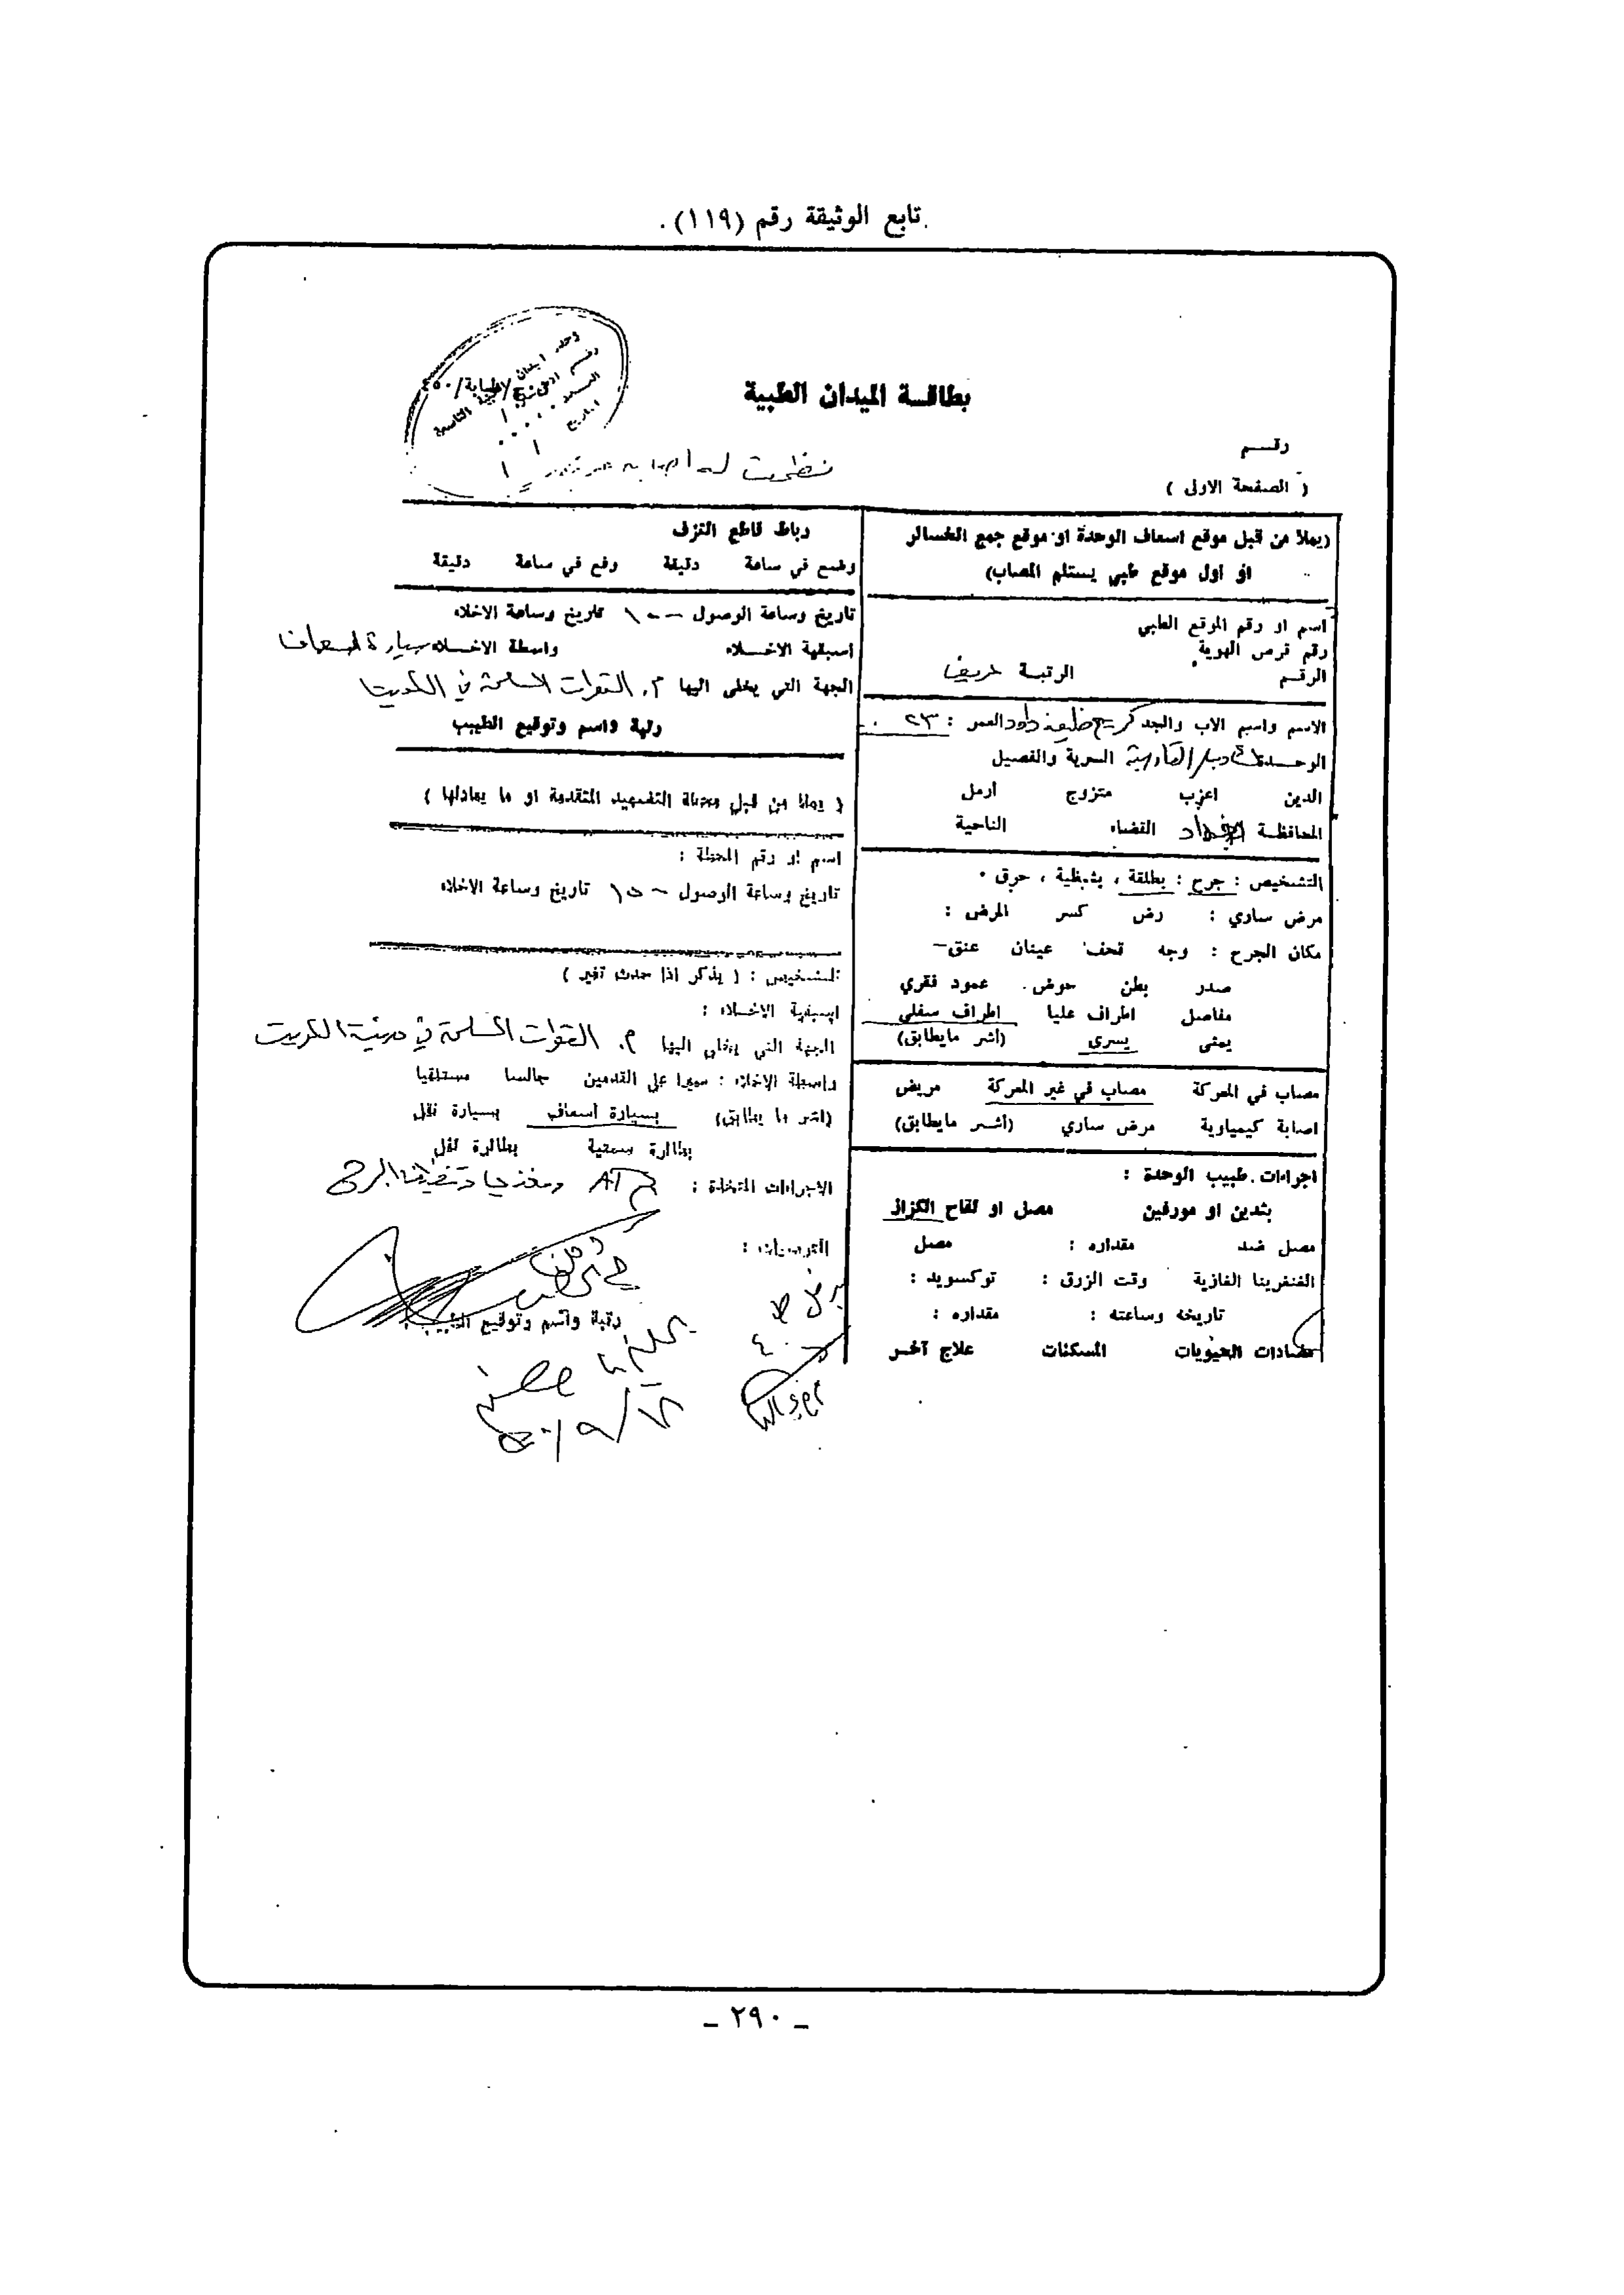 تابع الوثيقة رقم (١١٩).
بطاقة الميدان الطبية
رقم
( الصفحة الاولى )
(يملأ من قبل موقع اسعاف الوحدة او موقع جمع الخسائر
او اول موقع طبي يستلم المصاب)
اسم او رقم الموقع الطبي
رقم قرص الهوية
الرقم الرتبة عريف
الاسم واسم الاب والجد كريم خليفة داود العمر : ٢٣
الوحدة القادسية السرية والفصيل
الدين اعزب متزوج أرمل
المحافظة بغداد القضاء الناحية
التشخيص : جرح : بطلقة ، بشظية ، حرق .
مرض ساري : رض كسر المرض :
مكان الجرح : وجه قحف عينان عنق–
صدر بطن حوض عمود فقري
مفاصل اطراف عليا اطراف سفلى
يمنى يسرى (أشر مايطابق)
مصاب في المعركة مصاب في غير المعركة مريض
اصابة كيمياوية مرض ساري (أشر مايطابق)
اجراءات طبيب الوحدة :
بثدين او مورفين مصل او لقاح الكزاز
مصل ضد مقداره : مصل
الغنغرينا الغازية وقت الزرق : توكسويد :
تاريخه وساعته : مقداره :
مضادات الحيويات المسكنات علاج آخر
رباط قاطع النزف
وضع في ساعة دقيقة رفع في ساعة دقيقة
تاريخ وساعة الوصول تاريخ وساعة الاخلاء
اسبقية الاخلاء واسطة الاخلاء سيارة اسعاف
الجهة التي يخلى اليها م. القوات المسلحة في الكويت
رتبة واسم وتوقيع الطبيب
( يملأ من قبل محطة التضميد المتقدمة او ما يعادلها )
اسم او رقم المحطة :
تاريخ وساعة الوصول تاريخ وساعة الاخلاء
التشخيص : ( يذكر اذا حدث تغير )
اسبقية الاخلاء :
الجهة التي يخلى اليها م. القوات المسلحة في مدينة الكويت
واسطة الاخلاء : سيرا على القدمين جالسا مستلقيا
(اشر ما يطابق) بسيارة أسعاف بسيارة نقل
بطائرة سمتية بطائرة نقل
الاجراءات المتخذة :
التوصيات :
رتبة واسم وتوقيع الطبيب
ـ ٢٩٠ ـ